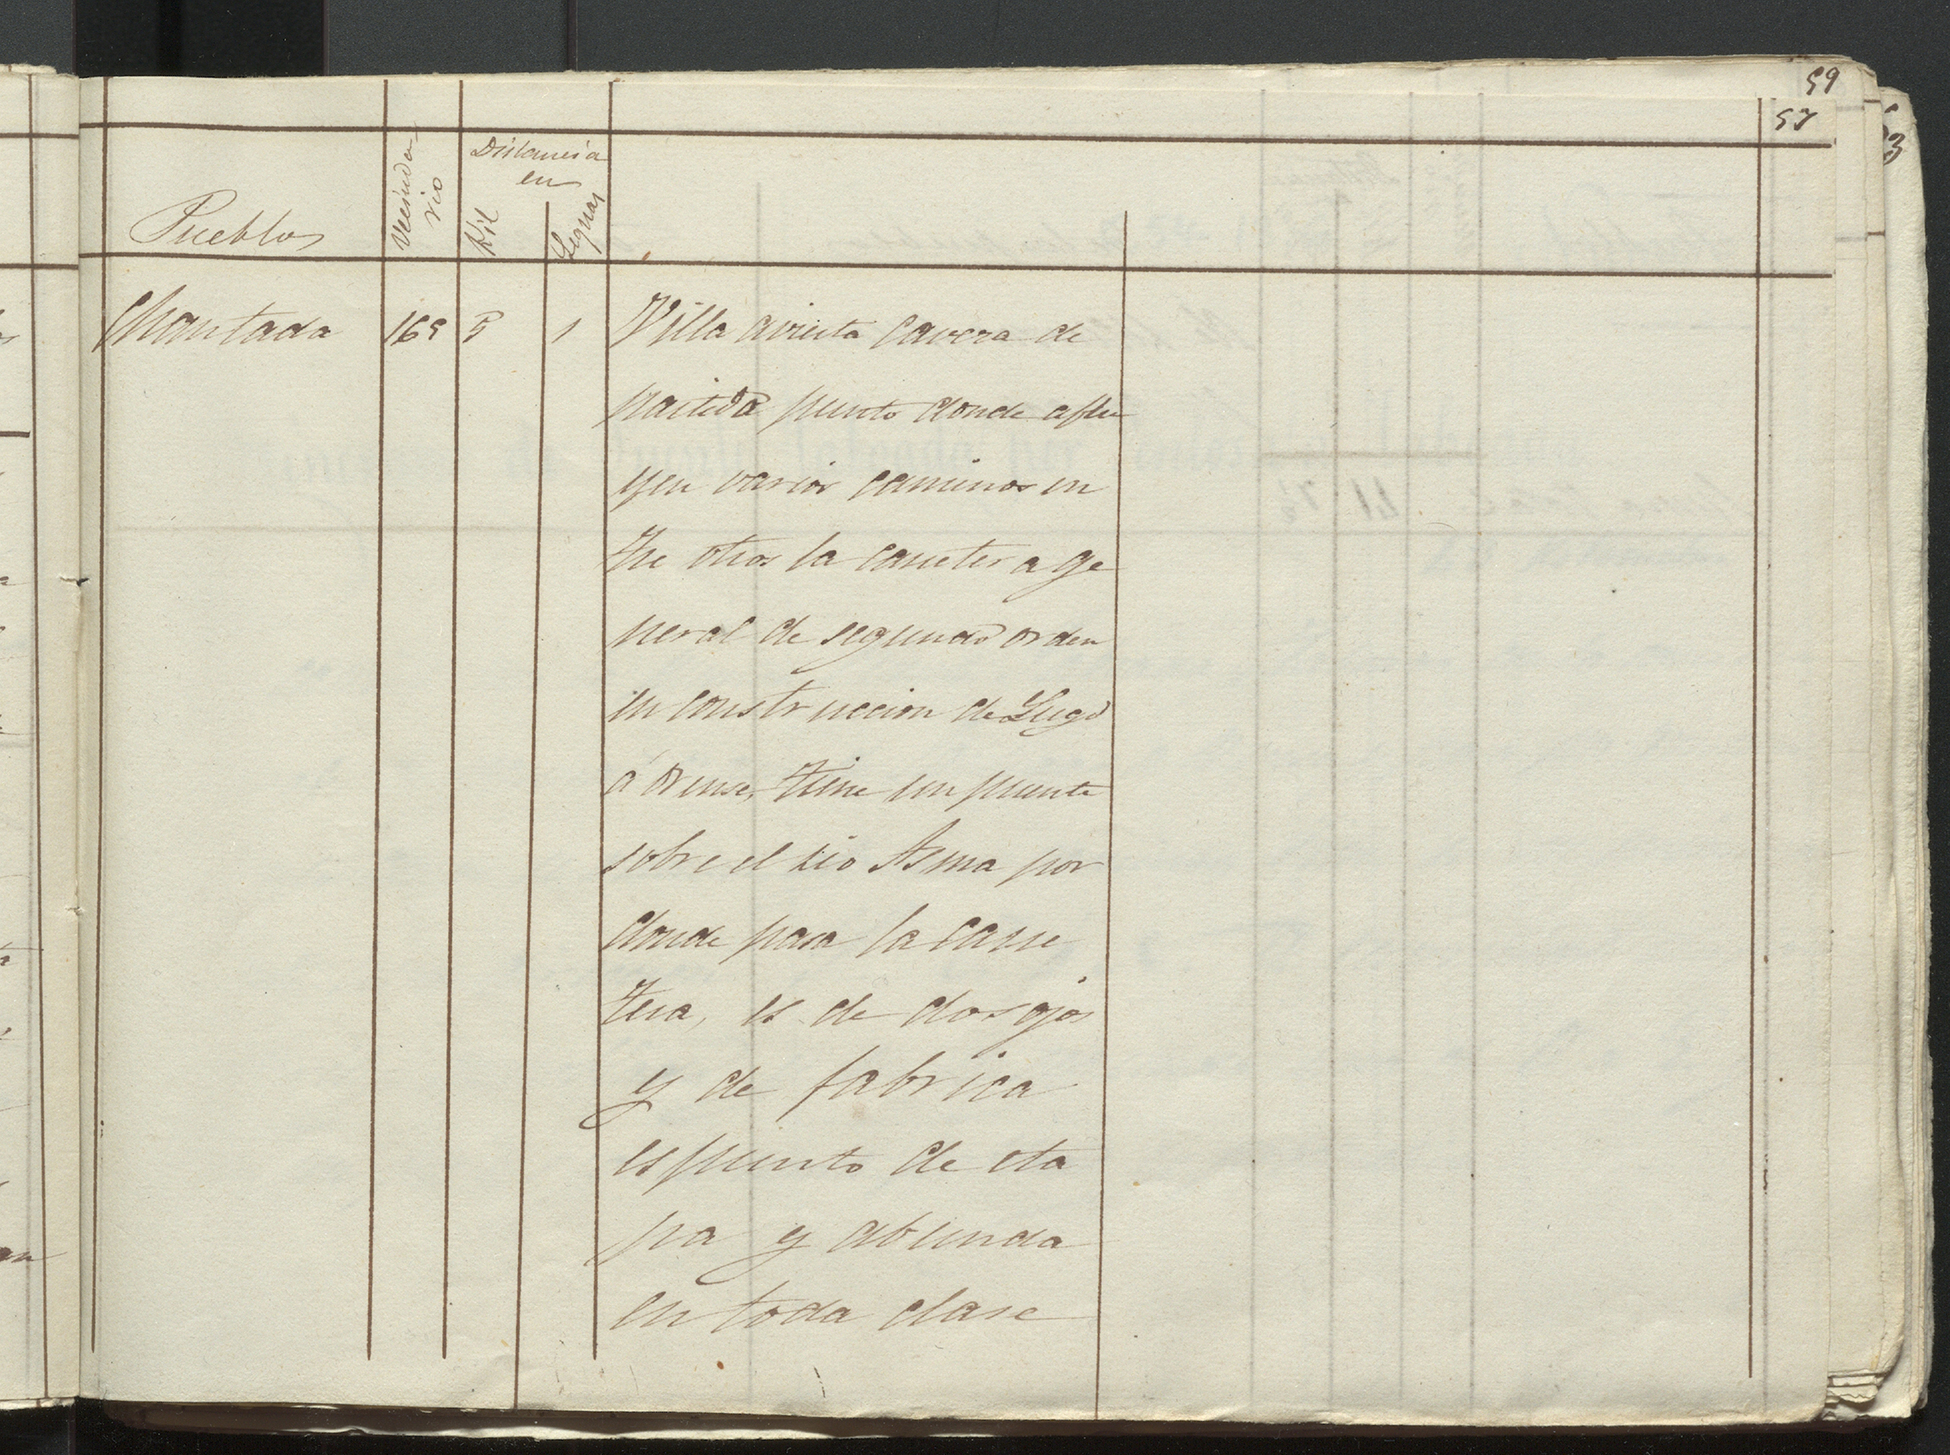 59
57
Pueblos
Vecinda-
rio
Distancia
en
Kil
Leguas
Chantada 165 5 1 Villa avierta cavera de
partido punto donde aflu
yen varios caminos en
tre otros la carretera ge
neral de segundo orden
en construccion de Lugo
á Orense, tiene un puente
sobre el rio Asma por
donde pasa la carre
tera, es de dos ojos
y de fabrica
es punto de eta
pa y abunda
en toda clase